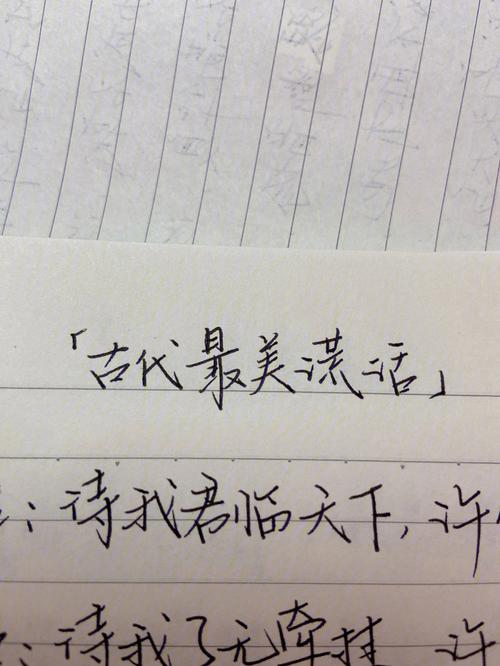 「古代最美谎话」
：待我君临天下，许
：待我了无牵挂 许